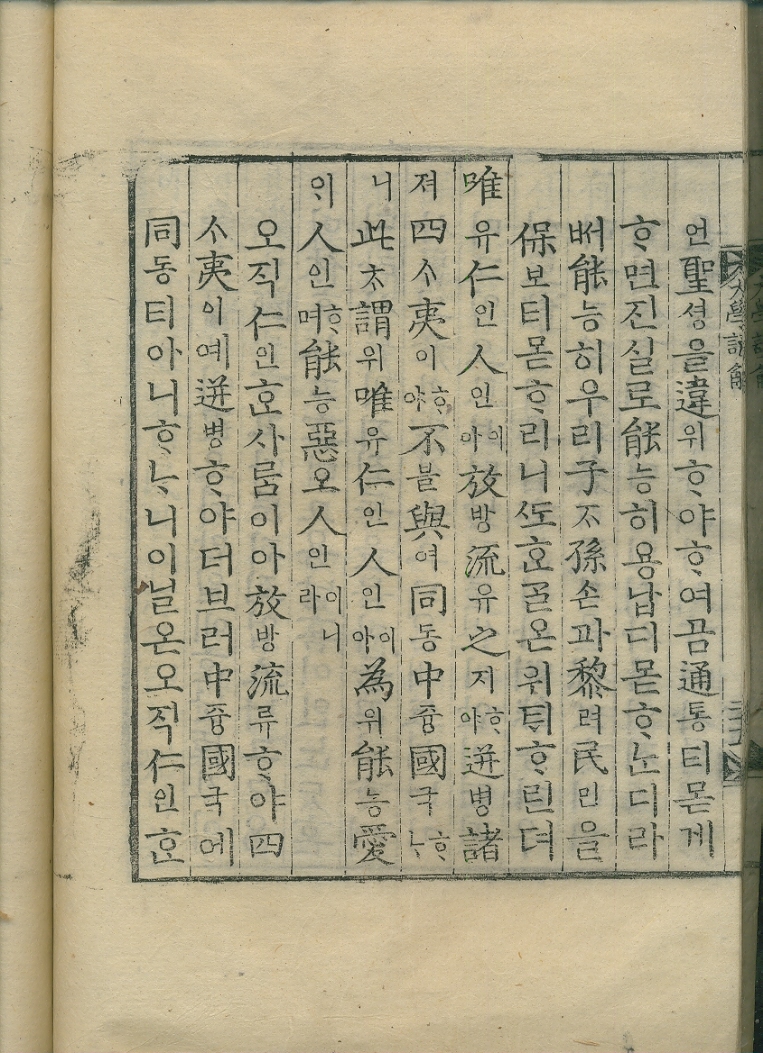 大學諺解
언聖셩을違위ᄒᆞ야ᄒᆞ여곰通통티몯게
ᄒᆞ면진실로能능히용납디몯ᄒᆞᄂᆞᆫ디라
ᄡᅥ能능히우리子ᄌᆞ孫손과黎려民민을
保보티몯ᄒᆞ리니ᄯᅩᄒᆞᆫᄀᆞᆯ온위ᄐᆡᄒᆞ린뎌
唯유仁인人인이아放방流유之지ᄒᆞ야迸병諸
져四ᄉᆞ夷이ᄒᆞ야不블與여同동中듕國국ᄒᆞᄂᆞ
니此ᄎᆞ謂위唯유仁인人인이아為위能능愛
ᄋᆡ人인ᄒᆞ며能능惡오人인이니라
오직仁인ᄒᆞᆫ사ᄅᆞᆷ이아放방流류ᄒᆞ야四
ᄉᆞ夷이예迸병ᄒᆞ야더브러中듕國국에
同동티아니ᄒᆞᄂᆞ니이닐온오직仁인ᄒᆞᆫ